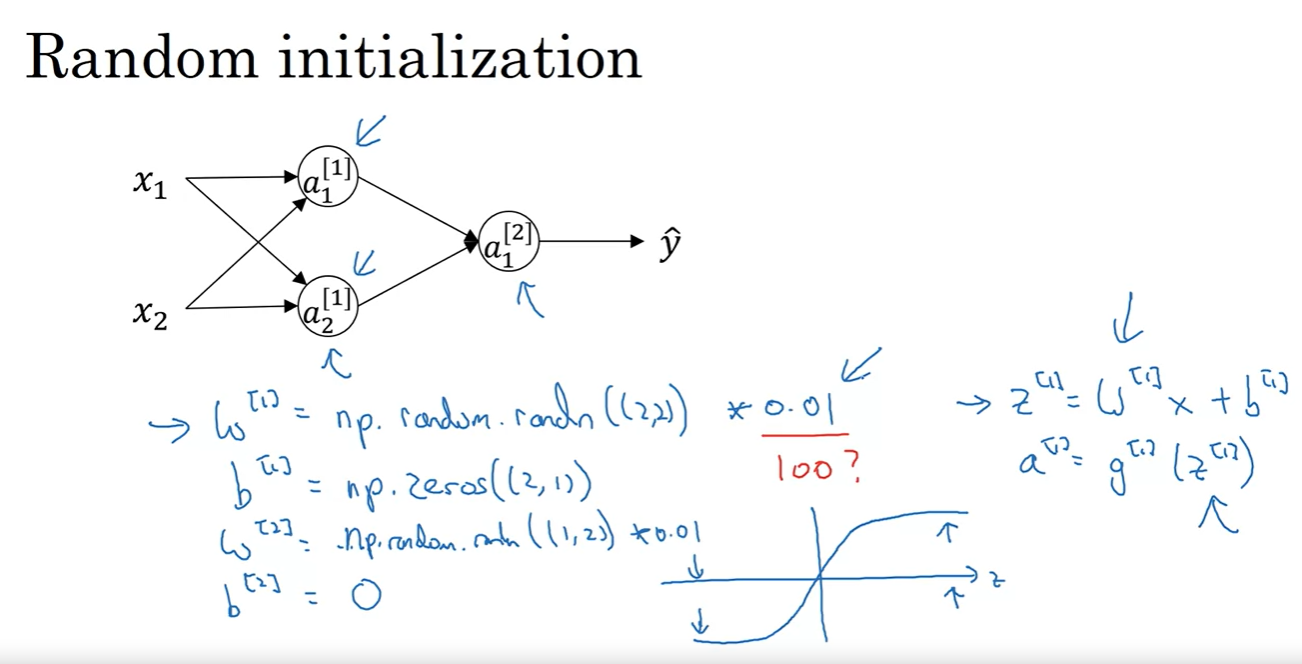 Random initialization
x₁ a₁^[1]
a₁^[2] ŷ
x₂ a₂^[1]
→ W^[1] = np.random.randn((2,2)) * 0.01
100?
b^[1] = np.zeros((2,1))
W^[2] = np.random.randn((1,2)) * 0.01
b^[2] = 0
→ z^[1] = W^[1] x + b^[1]
a^[1] = g^[1](z^[1])
z